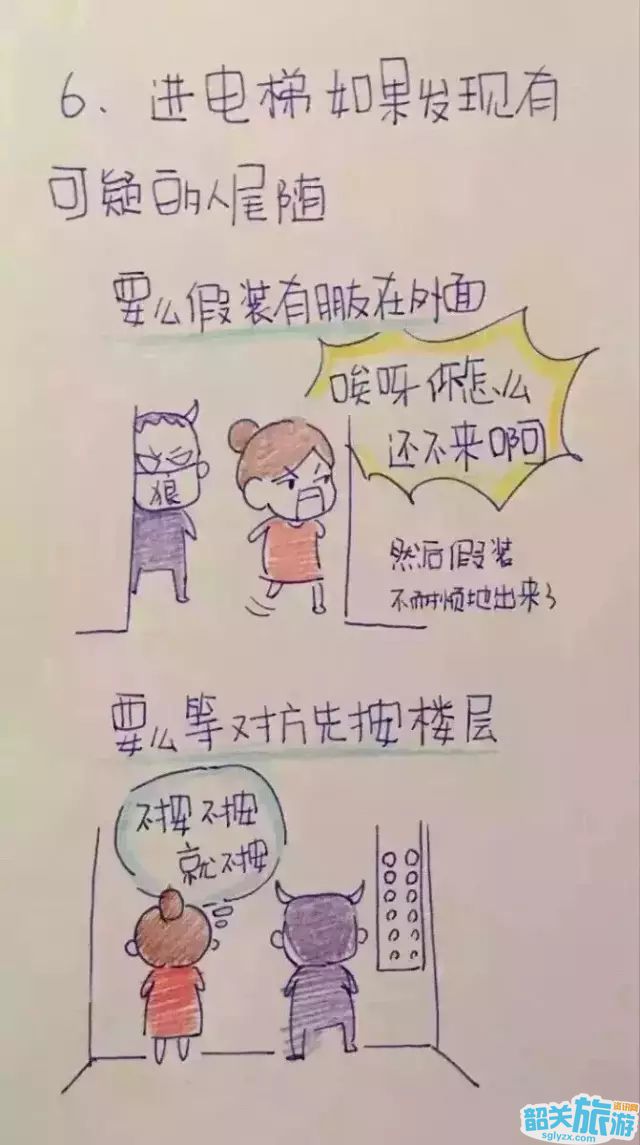 6、进电梯如果发现有
可疑的人尾随
要么假装有朋友在外面
唉呀你怎么
还不来啊
狼
然后假装
不耐烦地出来了
要么等对方先按楼层
不按不按
就不按
韶关旅游
资讯网
sglyzx.com